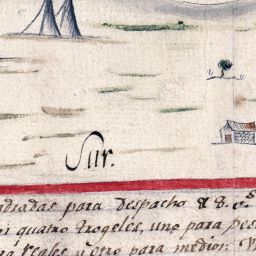 Sur.
adradas para despacho
quatro troqeles, uno para pes
reales, y otro para medios: